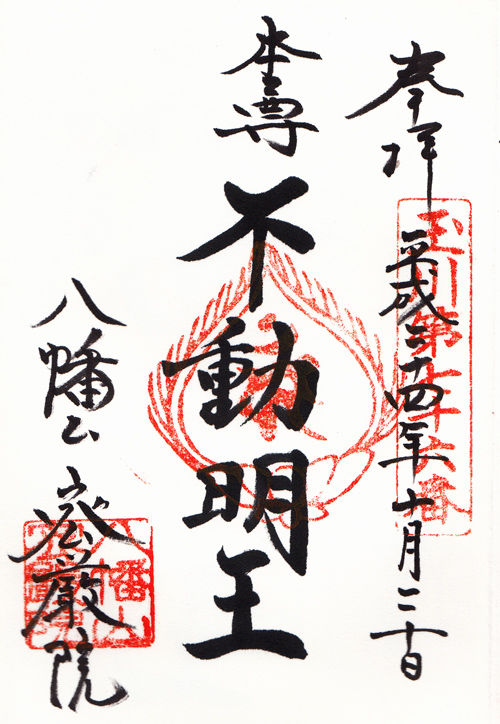 奉拝
平成二四年十月二十日
玉川第七十六番
本尊
不動明王
八幡山
密厳院